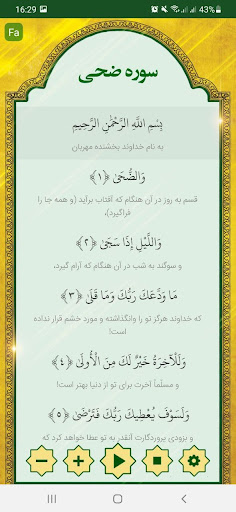 16:29
43%
Fa
سوره ضحی
بِسْمِ اللَّهِ الرَّحْمَٰنِ الرَّحِيمِ
به نام خداوند بخشنده مهربان
وَالضُّحَىٰ ﴿۱﴾
قسم به روز در آن هنگام که آفتاب برآید (و همه جا را
فراگیرد)،
وَاللَّيْلِ إِذَا سَجَىٰ ﴿۲﴾
و سوگند به شب در آن هنگام که آرام گیرد،
مَا وَدَّعَكَ رَبُّكَ وَمَا قَلَىٰ ﴿۳﴾
که خداوند هرگز تو را وانگذاشته و مورد خشم قرار نداده
است!
وَلَلْآخِرَةُ خَيْرٌ لَكَ مِنَ الْأُولَىٰ ﴿۴﴾
و مسلّماً آخرت برای تو از دنیا بهتر است!
وَلَسَوْفَ يُعْطِيكَ رَبُّكَ فَتَرْضَىٰ ﴿۵﴾
و بزودی پروردگارت آنقدر به تو عطا خواهد کرد که